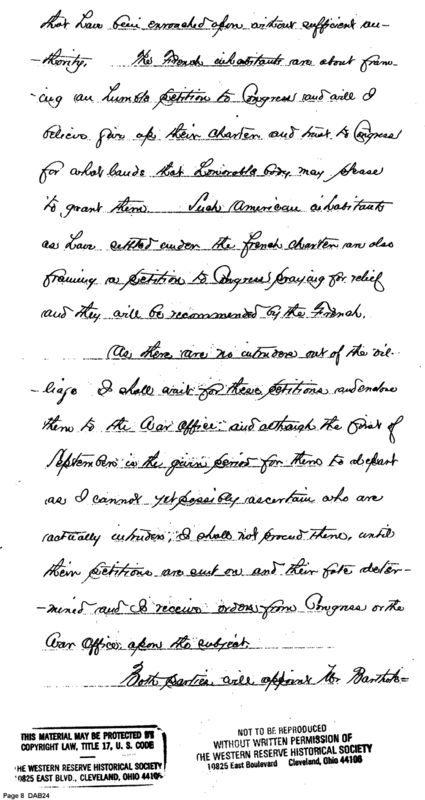 that have been encroached upon without sufficient au-
-thority. The French inhabitants are about fram-
-ing an humble petition to Congress and will I
believe give up their charter and trust to Congress
for what lands that honorable body may please
to grant them. Such American inhabitants
as have settled under the French charter are also
framing a petition to Congress praying for relief
and they will be recommended by the French.
As there are no intruders out of the vil-
-liage I shall wait for these petitions and endorse
them to the War Office: and although the first of
September is the given period for them to depart
as I cannot yet possibly ascertain who are
actually intruders, I shall not proceed there, until
their petitions are sent on and their fate deter-
-mined and I receive orders from Congress or the
War Office upon the subject.
Both parties will appoint Mr. Barthole=
THIS MATERIAL MAY BE PROTECTED BY
COPYRIGHT LAW, TITLE 17, U. S. CODE
THE WESTERN RESERVE HISTORICAL SOCIETY
10825 EAST BLVD., CLEVELAND, OHIO 44106
NOT TO BE REPRODUCED
WITHOUT WRITTEN PERMISSION OF
THE WESTERN RESERVE HISTORICAL SOCIETY
10825 East Boulevard Cleveland, Ohio 44106
Page 8 DAB24